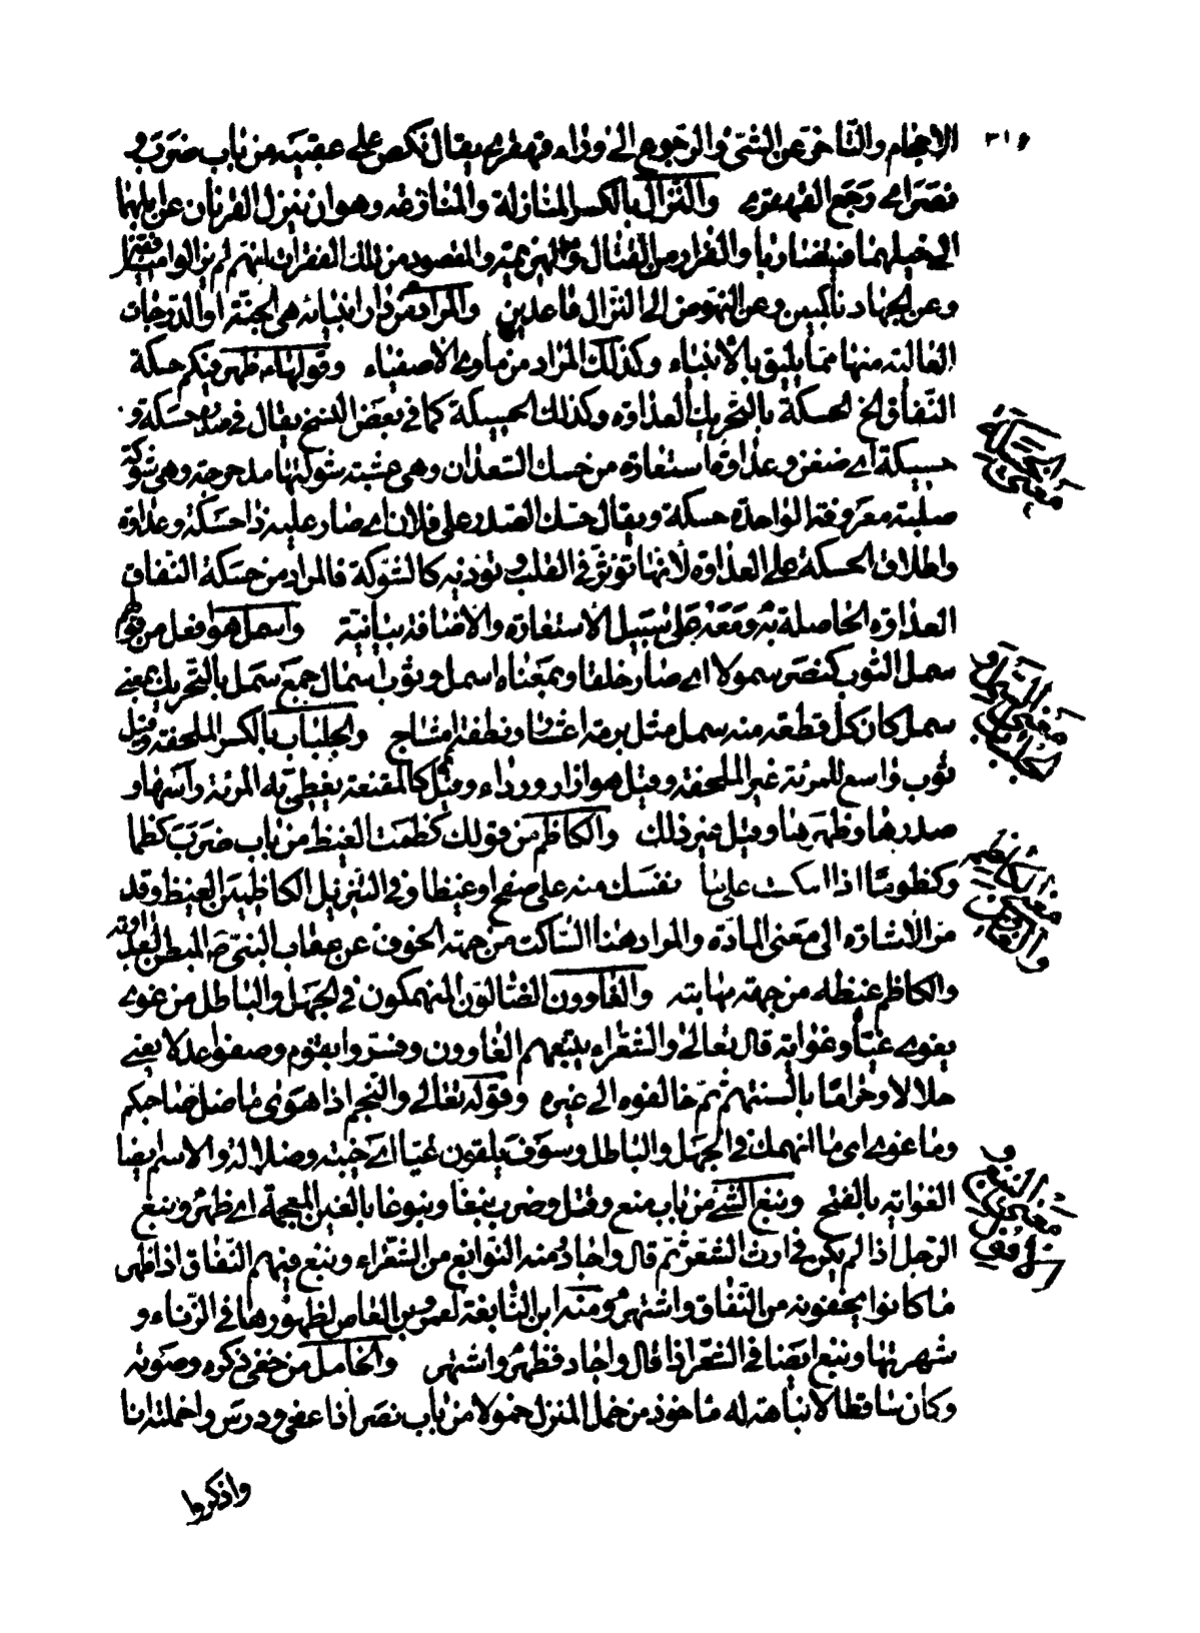 ٣١٦
الاحجام والتّأخر عن الشئ والرّجوع الى وراء قهقرى يقال نكص على عقبيه من باب ضرب و
نصر اى رجع القهقرى والنّزال بالكسر المنازلة والمنازعة وهو ان ينزل القرنان عن ابلهما
الى خيلهما فيتضاربا والفرار من القتال والهزيمة والمقصود من تلك الفقرات انهم لم يزالوا
وعن الجهاد ناكبين وعن النهوض الى النّزال قاعدين والمراد من دار انبيائه هى الجنّة او الدّرجات
العالية منها ممّا يليق بالأنبياء وكذلك المراد من مأوى الأصفياء وقولها ظهر فيكم حسكة
النّفاق الخ الحسكة بالتّحريك العداوة وكذلك الحسيكة كما فى بعض النسخ يقال فى صدره حسكة و
حسيكة اى ضغن وعداوة استعارة من حسك السّعدان وهى عشبة شوكتها مدحرجة وهى شوكة
صلبة معروفة الواحدة حسكة ويقال حسك الصّدر على فلان اى صار عليه ذا حسكة وعداوة
واطلاق الحسكة على العداوة لأنها تؤثّر فى القلب وتؤذيه كالشّوكة فالمراد من حسكة النّفاق
العداوة الحاصلة به ومعه على سبيل الأستعارة والأضافة بيانيّة واسمل هو افعل من قولهم
سمل الثوب كنصر سمولا اى صار خلقا وبمعناه اسمل وثوب اسمال جمع سمل بالتّحريك بمعنى
سمل كان كل قطعة منه سمل مثل برمة اعشار ونطفة امشاج والجلباب بالكسر الملحفة وقيل
ثوب واسع للمرئة غير الملحفة وقيل هو ازار ورداء وقيل كالمقنعة يغطى به المرئة رأسها و
صدرها وظهرها وقيل غير ذلك والكاظم من قولك كظمت الغيظ من باب ضرب كظما
وكظوما اذا امسكت على ما نفسك منه على صفح او غيظ وفى التّنزيل الكاظمين الغيظ وقد
مرّ الأشارة الى معنى المادّة والمراد هنا السّاكت من جهة الخوف عن عقاب النبىّ المبطن لعداوته
والكاظم غيظه من جهة مهابته والغاوون الضّالون المنهمكون فى الجهل والباطل من غوى
يغوى غيّا وغواية قال تعالى والشعراء يتبعهم الغاوون وفسّروا بقوم وصفوا عدلا يعنى
حلالا وحراما بالسنتهم ثمّ خالفوه الى غيره وقوله تعالى والنّجم اذا هوى ما ضل صاحبكم
وما غوى اى ما انهمك فى الجهل والباطل وسوف يلقون غيّا اى خيبة وضلالة والاسم ايضا
الغواية بالفتح ونبغ الشئ من باب منع وقتل وضرب نبغا ونبوغا بالغين المعجمة اى ظهر ونبغ
الرّجل اذا لم يكن فى ارث الشعر ثمّ قال واجاد ومنه النّوابغ من الشعراء ونبغ فيهم النّفاق اذا ظهر
ما كانوا يخفونه من النّفاق واشتهر ومنه ابن النّابغة لعمرو بن العاص لظهورها فى الزّناء و
شهرتها ونبغ ايضا فى الشعر اذا قال واجاد فظهر واشتهر والخامل من خفى ذكره وصوته
وكان ساقطا لا نباهة له مأخوذ من خمل المنزل خمولا من باب نصر اذا عفى ودرس واخملته انا
واذكروا
معنى الحسكة
معنى السمل و الجلباب
معنى الكاظم والغاوين
معنى النبوغ و